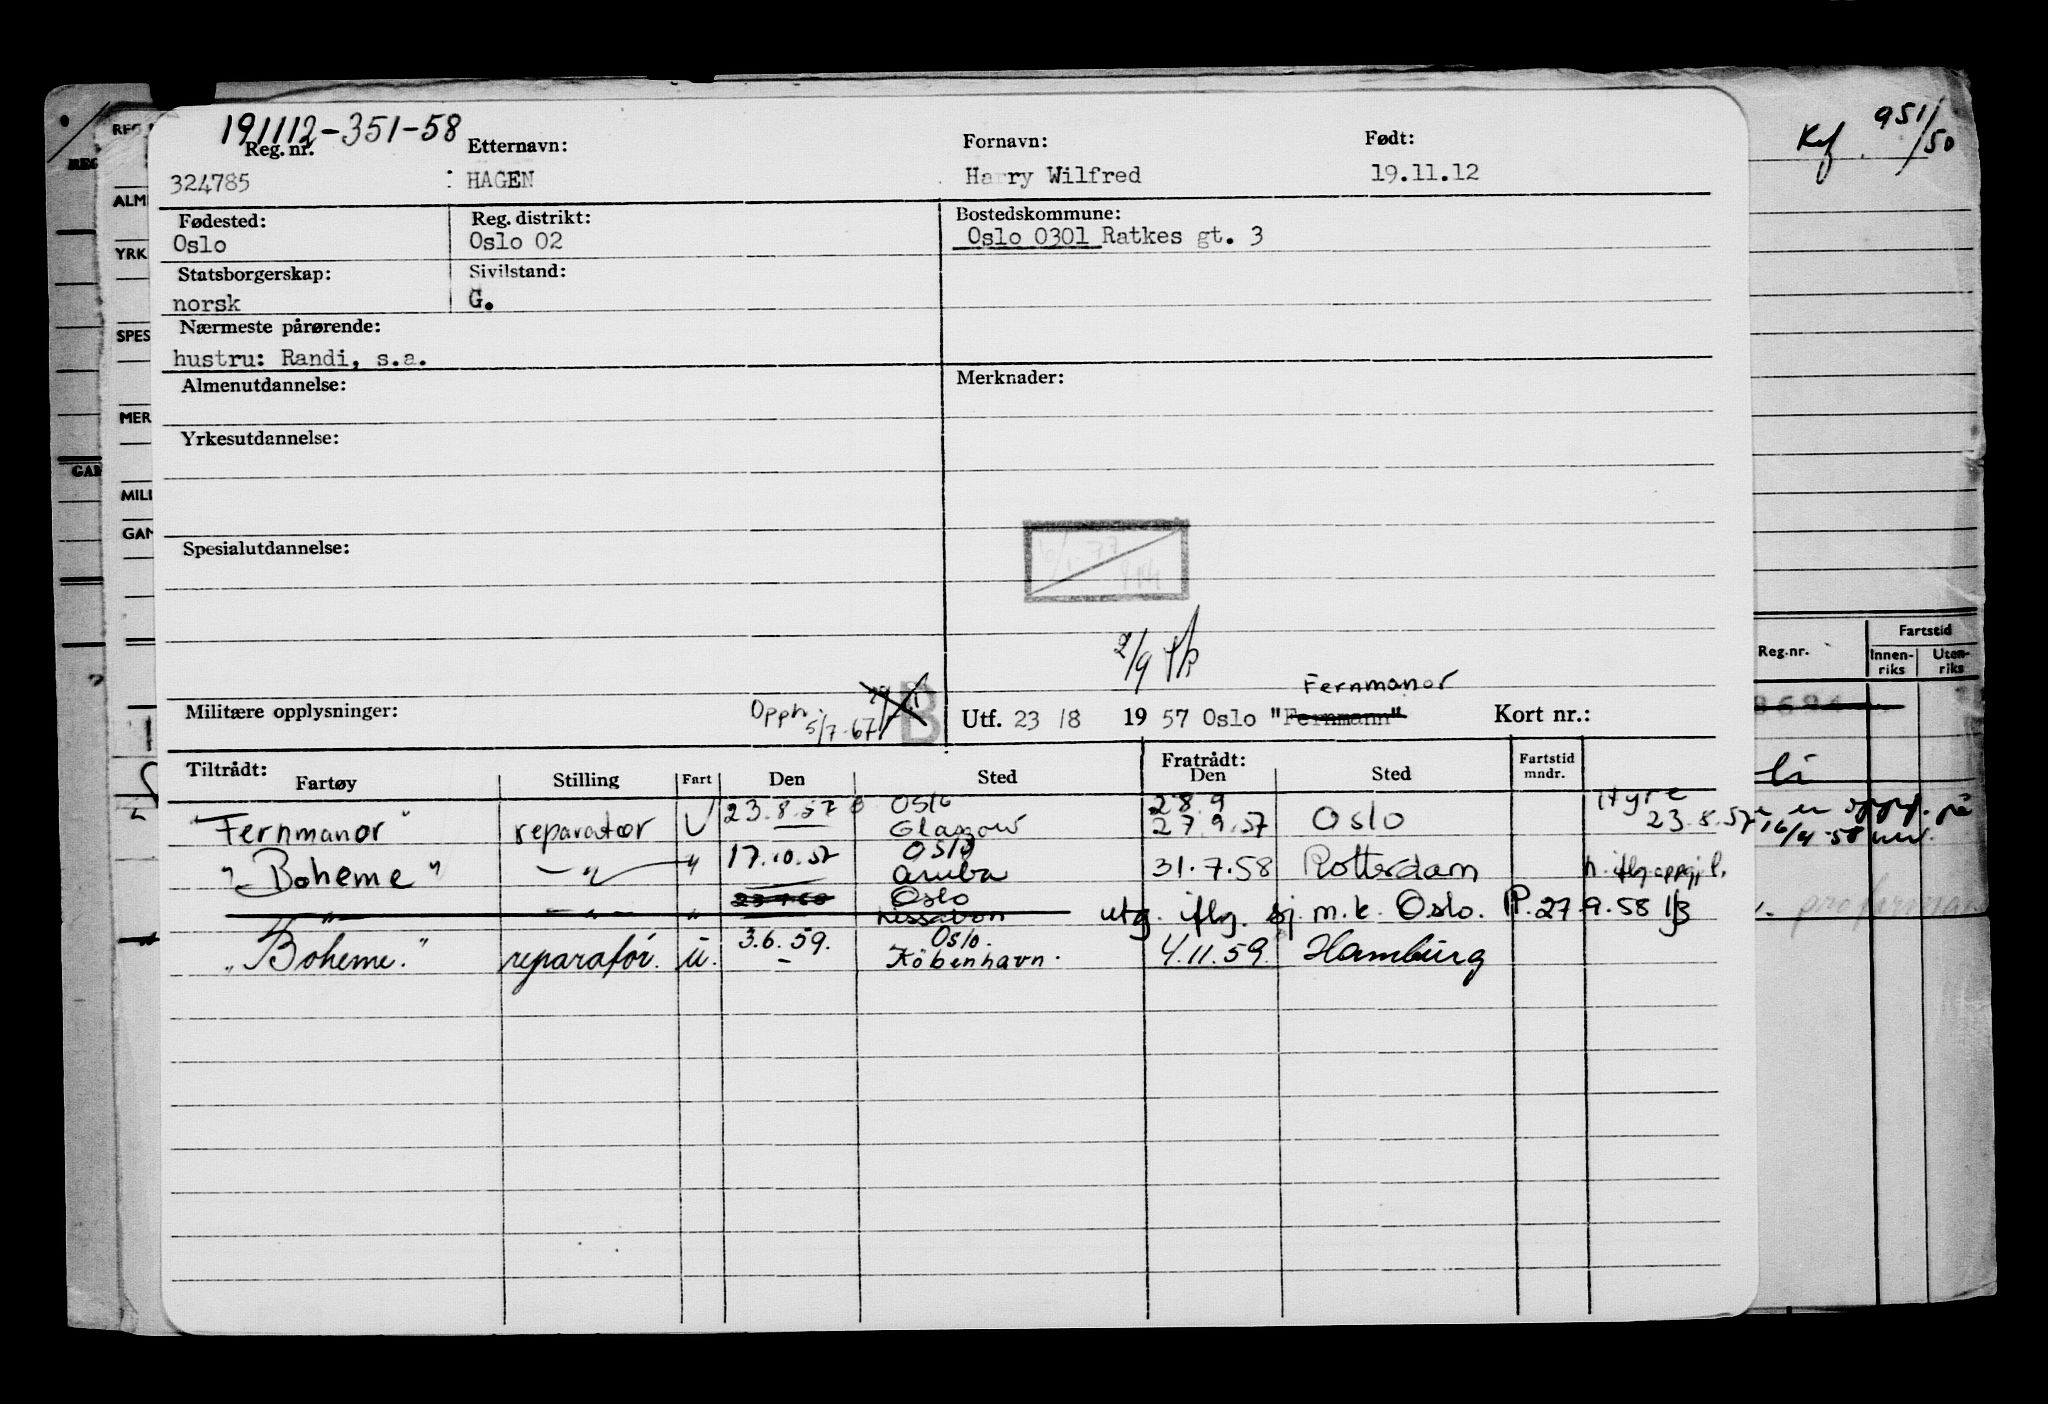 191112-351-58
Reg. nr. Etternavn: Fornavn: Født:
324785 : HAGEN Harry Wilfred 19.11.12
Fødested: Reg. distrikt: Bostedskommune:
Oslo Oslo 02 Oslo 0301 Ratkes gt. 3
Statsborgerskap: Sivilstand:
norsk G.
Nærmeste pårørende:
hustru: Randi, s.a.
Almenutdannelse: Merknader:
Yrkesutdannelse:
Spesialutdannelse:
2/9
Fernmanor
Militære opplysninger: Opph. 5/7-67 B Utf. 23/8 1957 Oslo "Fernmann" Kort nr.:
Tiltrådt: Fratrådt:
Fartøy Stilling Fart Den Sted Den Sted Fartstid mndr.
Oslo 28.9
"Fernmanor" reparatør U 23.8.57 Glasgow 27.9.57 Oslo 23.8.57
Oslo
"Boheme" -"- " 17.10.57 Aruba 31.7.58 Rotterdam
Oslo
" -"- " Lissabon utg. iflg. sj. m.k. Oslo. P. 27.9.58
Oslo.
"Boheme." reparatør. ü. 3.6.59. - København. 4.11.59. Hamburg
951/50
REG
ALM
YRK
SPES
MER
MILI
GAN
Fartstid
Reg.nr. Innen-riks Uten-riks
16/4-58